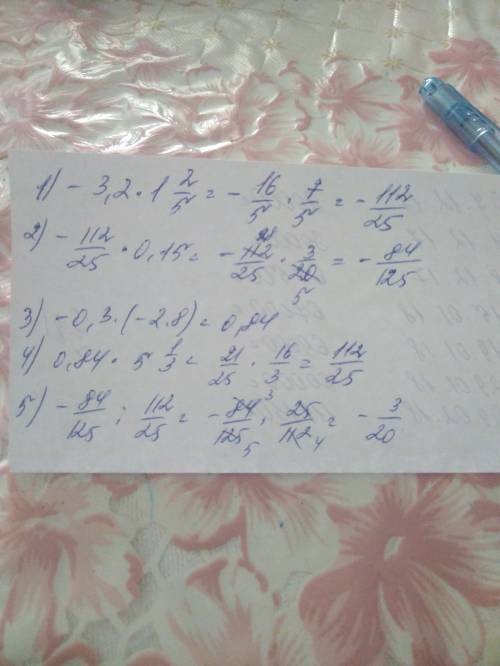 1) - 3,2 · 1 2/5 = - 16/5 · 7/5 = - 112/25
2) - 112/25 · 0,15 = - 112/25 · 3/20 = - 84/125
3) - 0,3 · (-2.8) = 0,84
4) 0,84 · 5 1/3 = 21/25 · 16/3 = 112/25
5) - 84/125 : 112/25 = - 84/125 · 25/112 = - 3/20